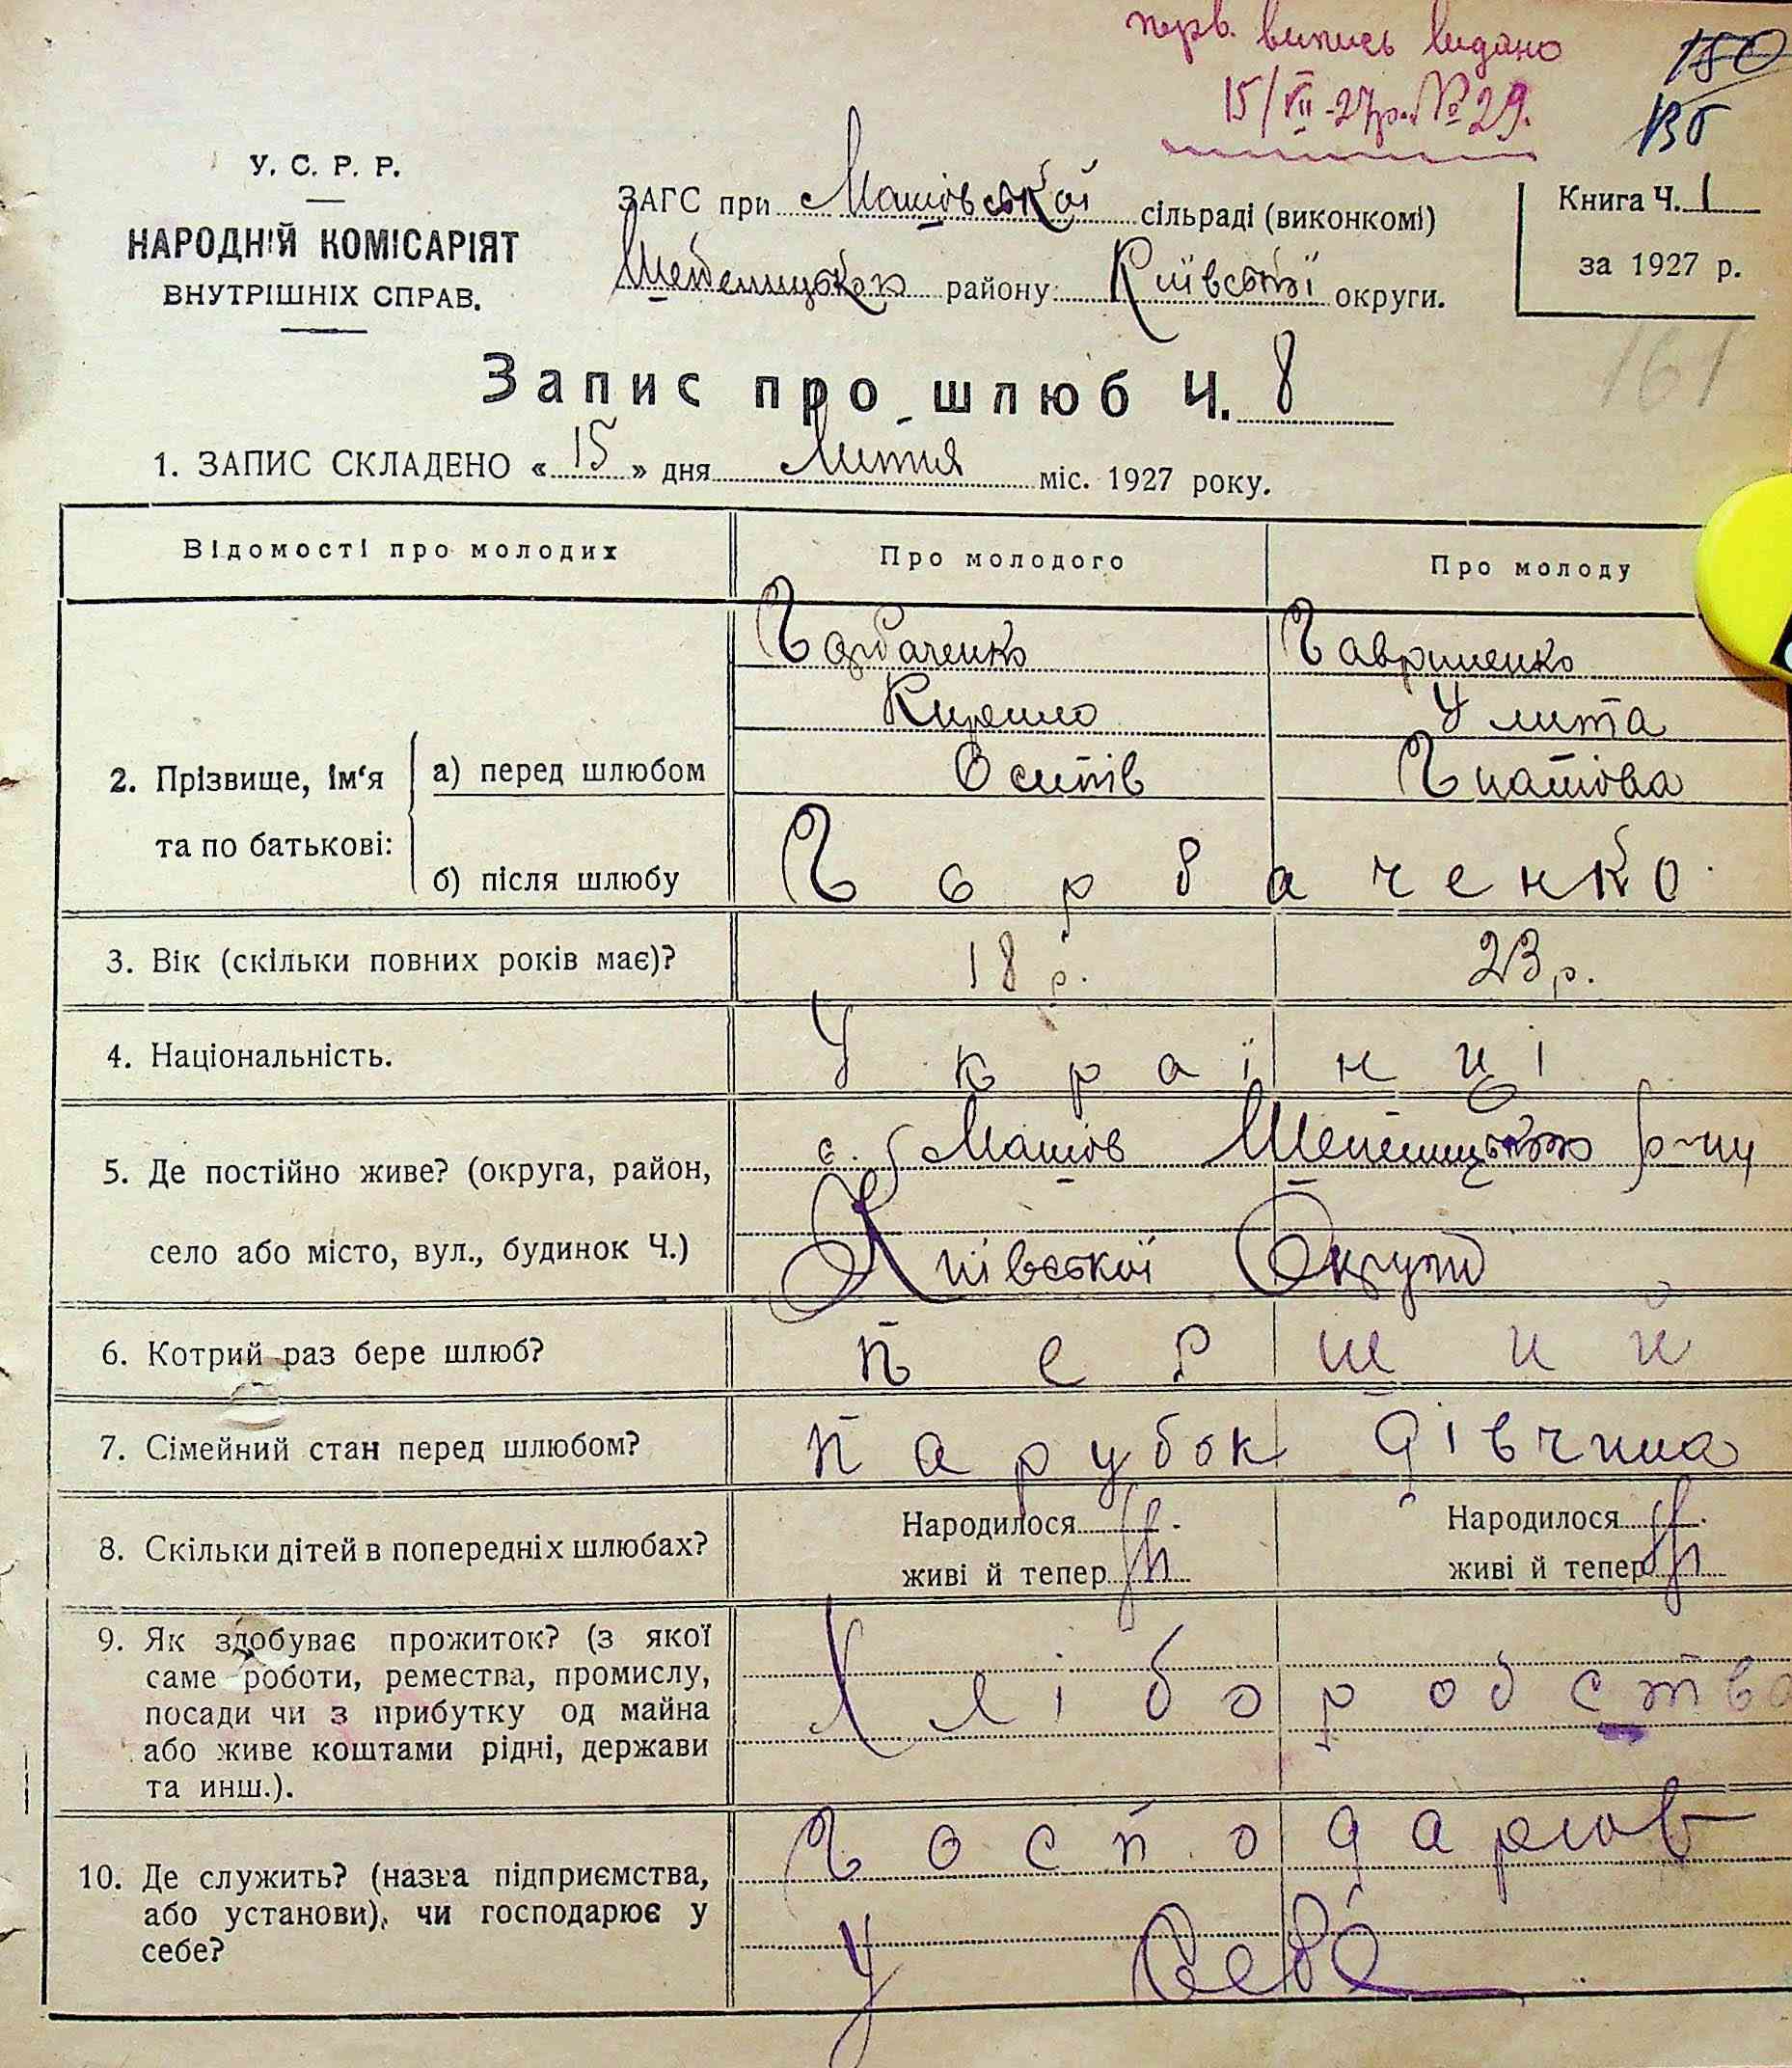 перв. випись видано
15/VII-27р. № 29.
150
136
У. С. Р. Р.
НАРОДНІЙ КОМІСАРІЯТ
ВНУТРІШНІХ СПРАВ.
ЗАГС при Машовській сільраді (виконкомі)
району Київської округи.
Книга Ч. 1
за 1927 р.
161
Запис про шлюб Ч. 8
1. ЗАПИС СКЛАДЕНО « 15 » дня міс. 1927 року.
Відомості про молодих Про молодого Про молоду
Горбаченко Гавриленко
Кирило Улита
2. Прізвище, ім'я а) перед шлюбом Осипів Гнатова
та по батькові:
б) після шлюбу Горбаченко
3. Вік (скільки повних років має)? 18 р. 23 р.
4. Національність. Українці
5. Де постійно живе? (округа, район, с. Машов р-ну
село або місто, вул., будинок Ч.) Київської Округи
6. Котрий раз бере шлюб? перший
7. Сімейний стан перед шлюбом? парубок дівчина
8. Скільки дітей в попередніх шлюбах? Народилося Народилося
живі й тепер живі й тепер
9. Як здобуває прожиток? (з якої
саме роботи, ремества, промислу, Хліборобства
посади чи з прибутку од майна
або живе коштами рідні, держави
та инш.).
Господарюв
10. Де служить? (назва підприємства,
або установи), чи господарює у у себе
себе?